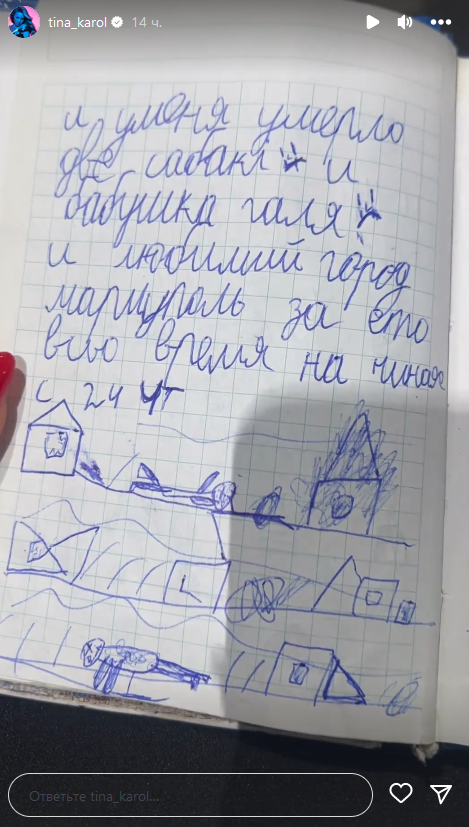 tina_karol 14 ч.
и уменя умерло
две сабаки и
бабушка галя
и любимий город
мариуполь за ето
всю время на чиная
с 24 чт
Ответьте tina_karol...